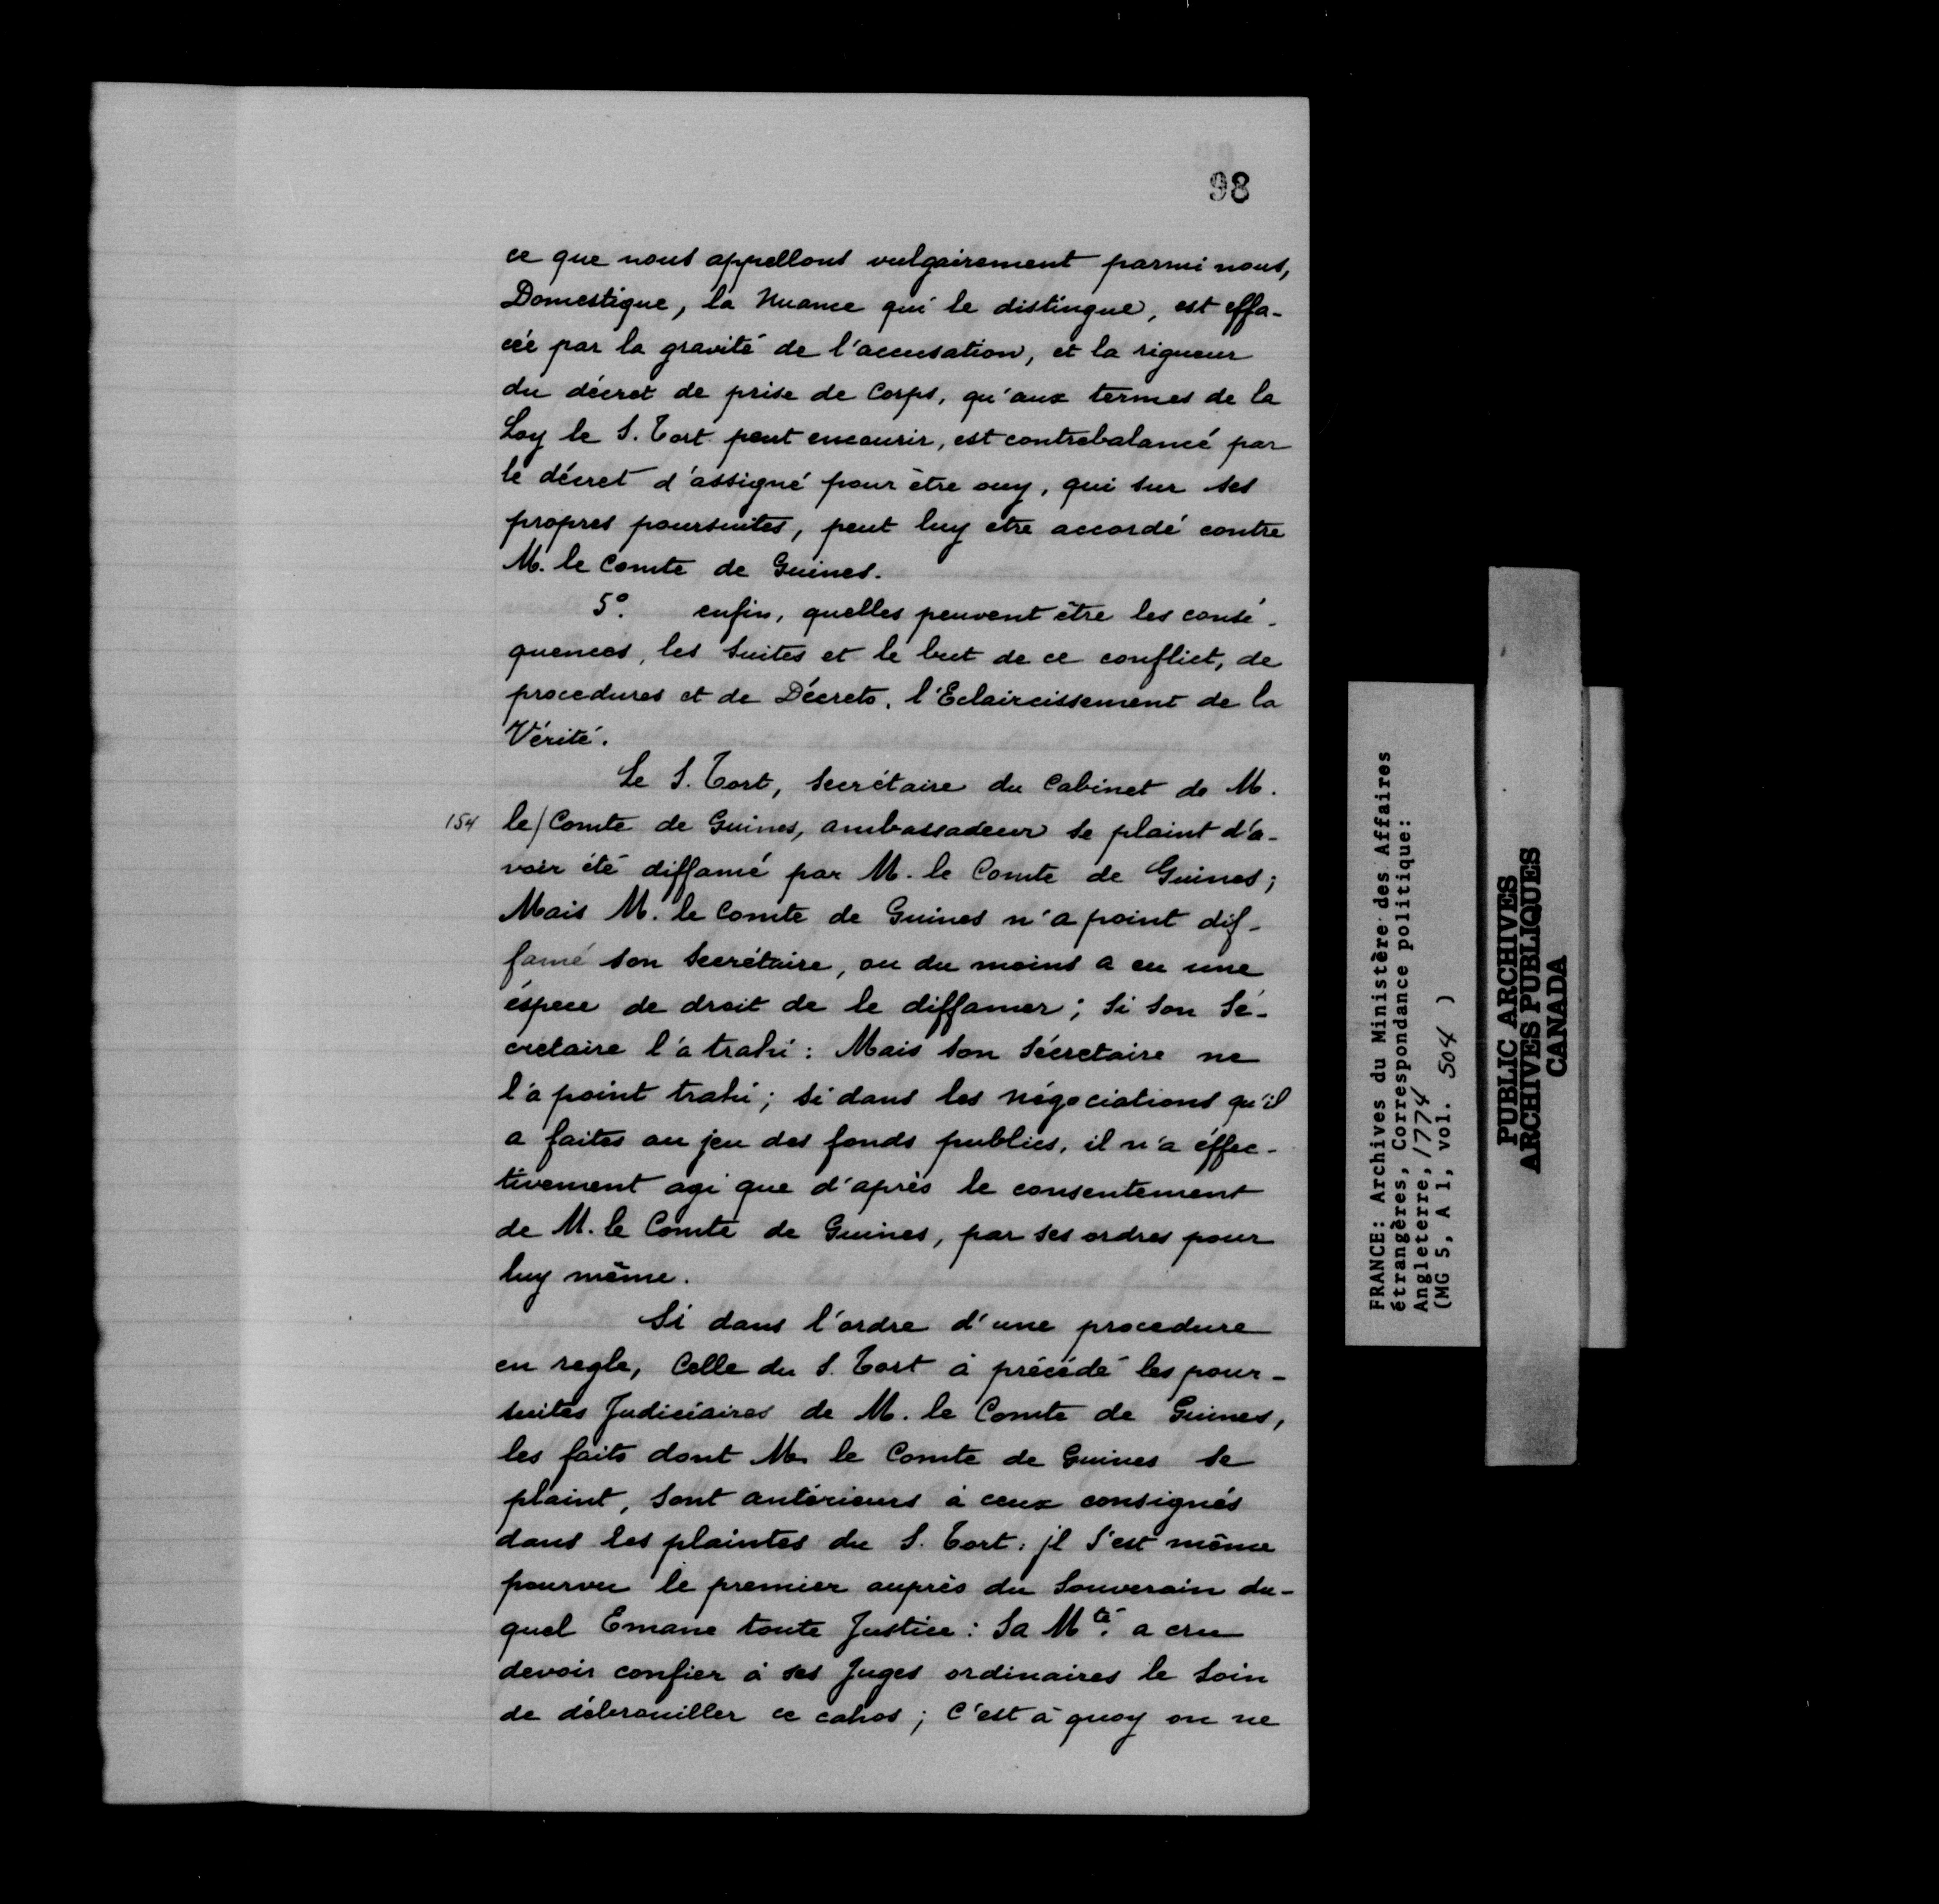 98
ce que nous appellons vulgairement parmi nous,
Domestique, la Nuance qui le distingue, est effa-
cée par la gravité de l'accusation, et la rigueur
du décret de prise de Corps, qu'aux termes de la
Loy le S. Tort peut encourir, est contrebalancé par
le décret d'assigné pour être ouy, qui sur ses
propres poursuites, peut luy etre accordé contre
M. le Comte de Guines.
5°. enfin, quelles peuvent être les consé-
quences, les suites et le but de ce conflict, de
procedures et de Décrets, l'Eclaircissement de la
Vérité.
Le S. Tort, Secrétaire du Cabinet de M.
154 le/Comte de Guines, ambassadeur se plaint d'a-
voir été diffamé par M. le Comte de Guines;
Mais M. le Comte de Guines n'a point dif-
famé son Secrétaire, ou du moins a eu une
éspece de droit de le diffamer; Si son Sé-
cretaire l'a trahi: Mais son Sécretaire ne
l'a point trahi; si dans les négociations qu'il
a faites au jeu des fonds publics, il n'a éffec-
tivement agi que d'après le consentement
de M. le Comte de Guines, par ses ordres pour
luy même.
Si dans l'ordre d'une procedure
en regle, Celle du S. Tort à précédé les pour-
suites Judiciaires de M. le Comte de Guines,
les faits dont M. le Comte de Guines se
plaint, sont antérieurs à ceux consignés
dans les plaintes du S. Tort: jl s'est même
pourvu le premier auprès du Souverain du-
quel Emane toute Justice: Sa Mté. a cru
devoir confier à ses Juges ordinaires le Soin
de débrouiller ce cahos; C'est à quoy on ne
FRANCE: Archives du Ministère des Affaires
étrangères, Correspondance politique:
Angleterre, 1774
(MG 5, A 1, vol. 504 )
PUBLIC ARCHIVES
ARCHIVES PUBLIQUES
CANADA